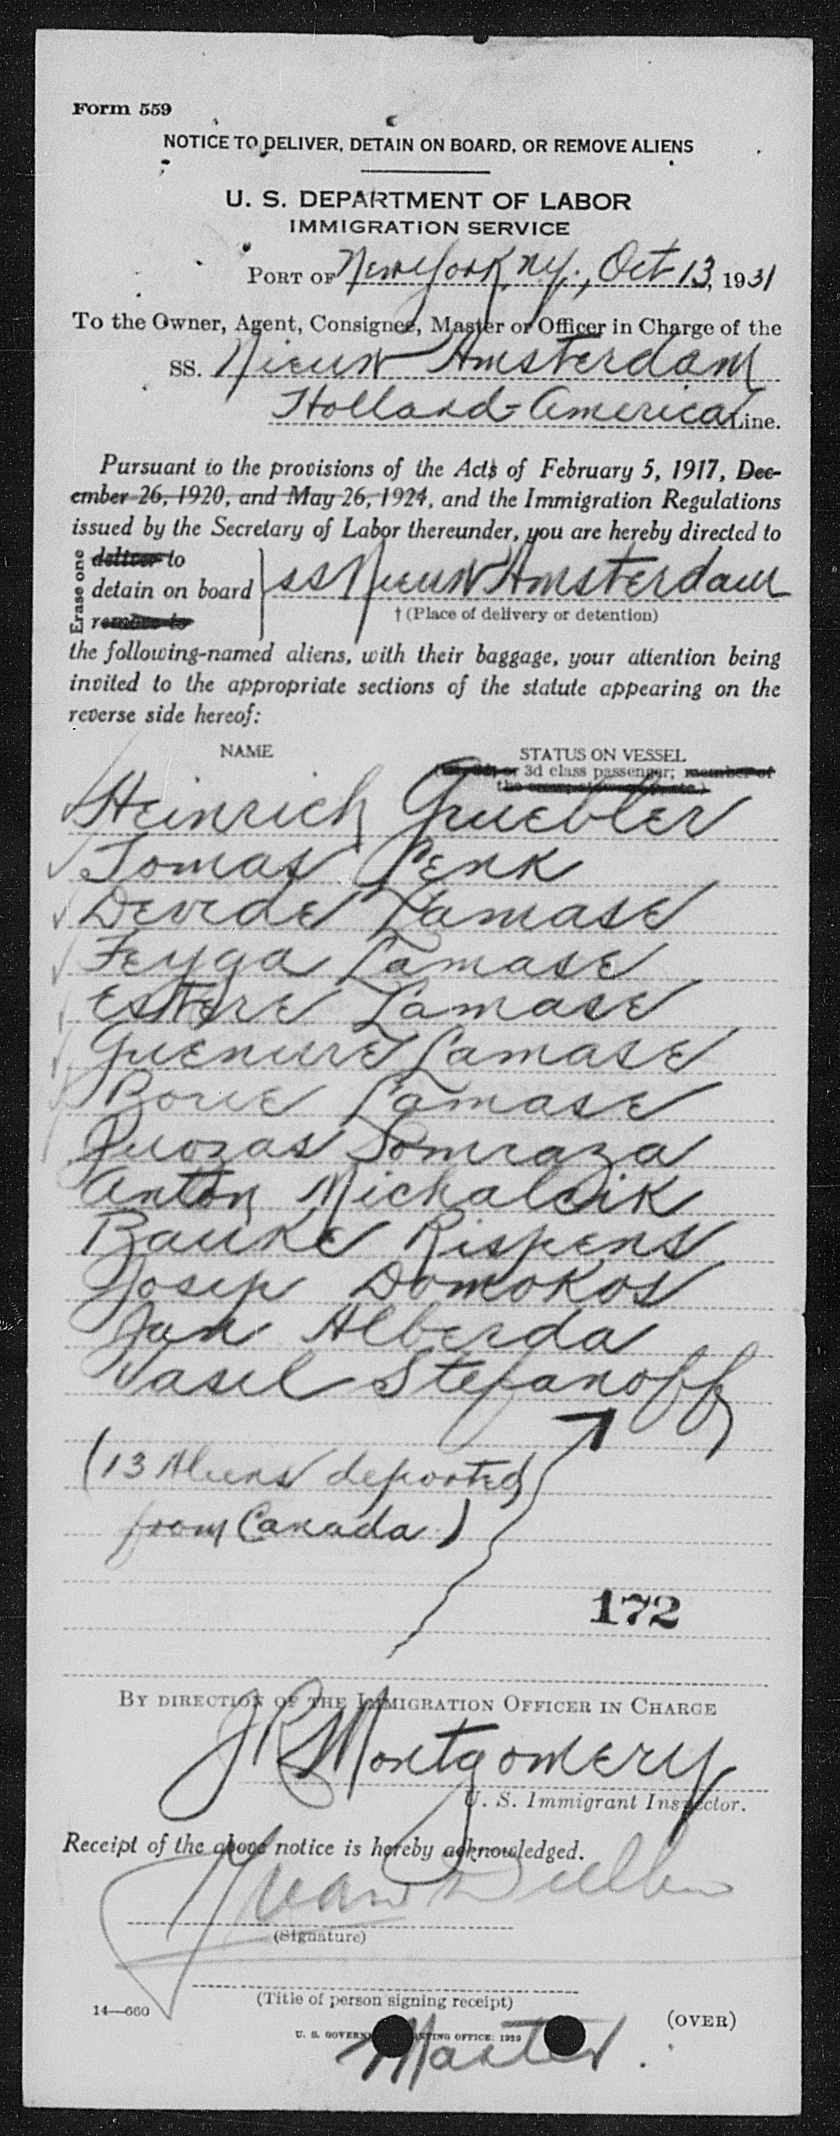 Form 559
NOTICE TO DELIVER, DETAIN ON BOARD, OR REMOVE ALIENS
U. S. DEPARTMENT OF LABOR
IMMIGRATION SERVICE
PORT OF New York, N.Y., Oct 13, 1931
To the Owner, Agent, Consignee, Master or Officer in Charge of the
SS. Nieuw Amsterdam
Holland-America Line.
Pursuant to the provisions of the Acts of February 5, 1917, Dec-
ember 26, 1920, and May 26, 1924, and the Immigration Regulations
issued by the Secretary of Labor thereunder, you are hereby directed to
Erase one
deliver to
detain on board } SS Nieuw Amsterdam
remove to
† (Place of delivery or detention)
the following-named aliens, with their baggage, your attention being
invited to the appropriate sections of the statute appearing on the
reverse side hereof:
NAME STATUS ON VESSEL
or 3d class passenger; member of
Heinrich Gruebler
Tomas Penk
Devide Lamase
Feyga Lamase
Estere Lamase
Lamase
Lamase
Juozas
Anton Michalcik
Bauke Rispens
Josip Domokos
Jan Alberda
Vasil Stefanoff
(13 Aliens deported
from Canada)
172
BY DIRECTION OF THE IMMIGRATION OFFICER IN CHARGE
JR Montgomery
U. S. Immigrant Inspector.
Receipt of the above notice is hereby acknowledged.
(Signature)
(Title of person signing receipt)
14—660
(OVER)
U. S. GOVERNMENT PRINTING OFFICE: 1929
Master